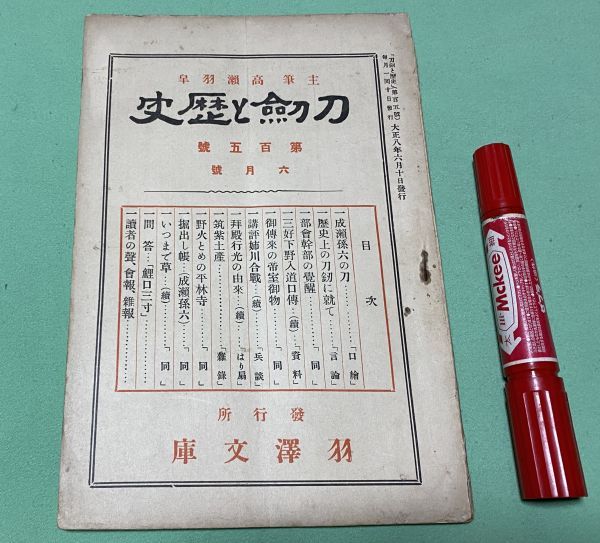 『刀劍と歷史』第百五號
每月一回十日發行
大正八年六月十日發行
主筆高瀨羽皐
刀劍と歷史
第百五號
六月號
目次
一成瀨孫六の刀………「口繪」
一歷史上の刀釼に就て……「言論」
一部會幹部の覺醒………「同」
一三好下野入道口傳…(續)…「資料」
一御傳來の帝室御物………「同」
一講評姉川合戰…(續)…「兵談」
一拜殿行光の由來…(續)…「はり扇」
一筑紫土產………「雜錄」
一野火とめの平林寺………「同」
一掘出し帳…(成瀨孫六)…「同」
一いつまで草…(續)………「同」
一問答…「鯉口三寸」………
一讀者の聲、會報、雜報………
發行所
羽澤文庫
Mckee
太
細